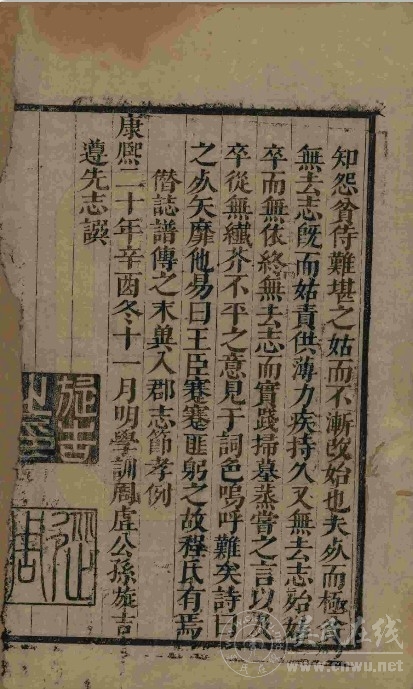 知怨貧侍難堪之姑而不漸改始也夫死而極
無去志旣而姑責供薄力疾持久又無去志始姑
卒而無依終無去志而實踐掃墓蒸嘗之言以及
卒從無纖芥不平之意見于詞色嗚呼難矣詩曰
之死矢靡他易曰王臣蹇蹇匪躬之故釋氏有焉
僭誌譜傳之末兾入郡志節孝例
康熙二十年辛酉冬十一月明學訓周虛公孫旋吉
遵先志譔
旋吉
之印
吴氏在线
www.cnwu.net